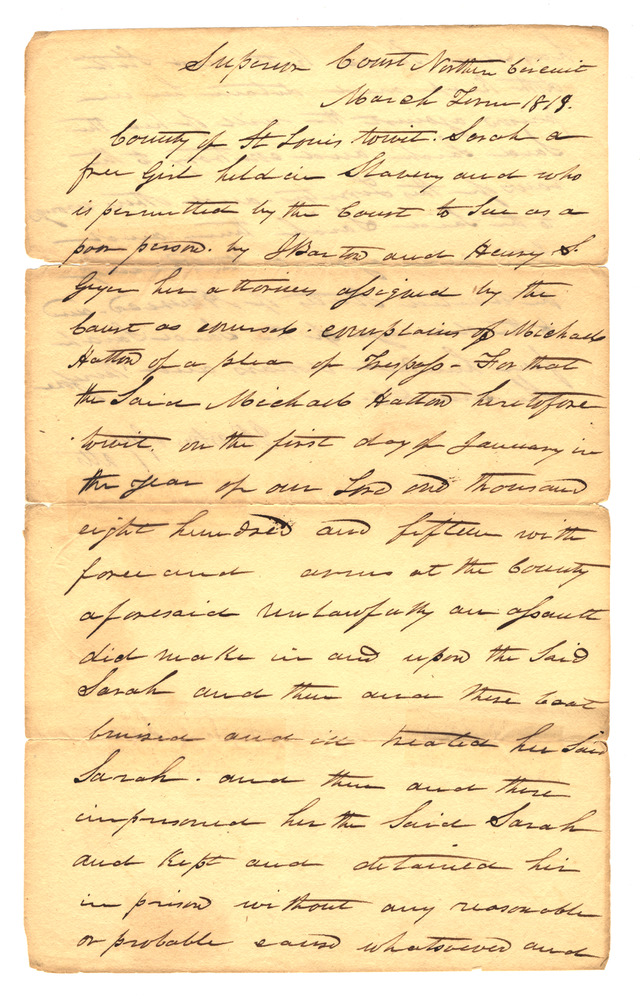 Superior Court Northern Circuit
March Term 1819.
County of St Louis towit. Sarah a
free Girl held in Slavery and who
is permitted by the Court to Sue as a
poor person. by J Barton and Henry S.
Geyer her attornies assigned by the
Court as counsel. complains of Michael
Hatton of a plea of Trespass - For that
the Said Michael Hatton heretofore
towit. on the first day of January in
the year of our Lord one thousand
eight hundred and fifteen with
force and arms at the County
aforesaid unlawfully an assault
did make in and upon the Said
Sarah and then and there beat
bruised and ill treated her Said
Sarah. and then and there
imprisoned her the Said Sarah
and Kept and detained her
in prison without any reasonable
or probable cause whatsoever and